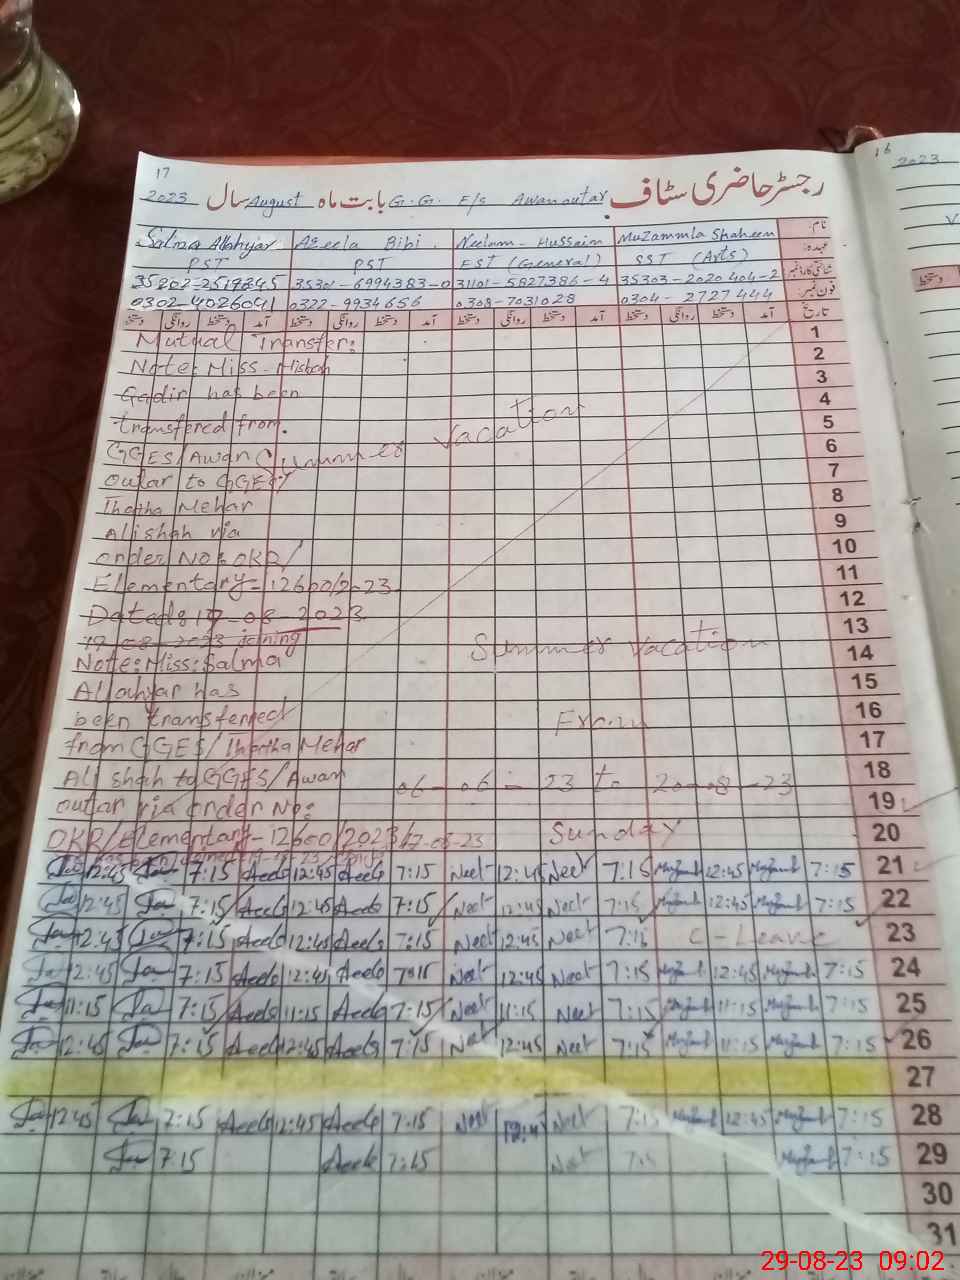 17
رجسٹر حاضری سٹاف G.G. E/s Awan outar بابت ماہ August سال 2023
16
2023
نام:
Salma Allahyar
Azeela Bibi.
Neelam - Hussain
Muzammla Shaheen
عہدہ:
PST
PST
EST (General)
SST (Arts)
شناختی کارڈ نمبر
35202-2519845
35301-6994383-0
31101-5827386-4
35303-2020404-2
فون نمبر:
0302-4026041
0322-9934656
0308-7031028
0304-2727444
تاریخ آمد دستخط روانگی دستخط آمد دستخط روانگی دستخط آمد دستخط روانگی دستخط آمد دستخط روانگی دستخط
Mutual Transfer:
Note: Miss - Misbah
Qadir has been
transfered from.
GGES/Awan
outar to GGES/
Thatha Mehar
Alishah via
order NO: OKR/
Elementary= 12600/2-23.
Dated: 17-08-2023
19-08-2023 joining
Note: Miss: Salma
Allahyar has
been transferred
from GGES/Thatha Mehar
Ali shah to GGES/Awan
outar via order No:
OKR/Elementary-12600/2023/17-08-23
Summer Vacation
Summer Vacation
From
06-06-23 to 20-08-23
Sunday
1
2
3
4
5
6
7
8
9
10
11
12
13
14
15
16
17
18
19
20
12:45 7:15 Aeela 12:45 Aeela 7:15 Neel 12:45 Neel 7:15 12:45 7:15 21
12:45 7:15 Aeela 12:45 Aeela 7:15 Neel 12:45 Neel 7:15 12:45 7:15 22
12:45 7:15 Aeela 12:45 Aeela 7:15 Neel 12:45 Neel 7:15 C-Leave 23
12:45 7:15 Aeela 12:45 Aeela 7:15 Neel 12:45 Neel 7:15 12:45 7:15 24
11:15 7:15 Aeela 11:15 Aeela 7:15 Neel 11:15 Neel 7:15 11:15 7:15 25
12:45 7:15 Aeela 12:45 Aeela 7:15 Neel 12:45 Neel 7:15 11:15 7:15 26
27
12:45 7:15 Aeela 12:45 Aeela 7:15 Neel 12:45 Neel 7:15 12:45 7:15 28
7:15 Aeela 7:15 Neel 7:15 7:15 29
30
31
29-08-23 09:02